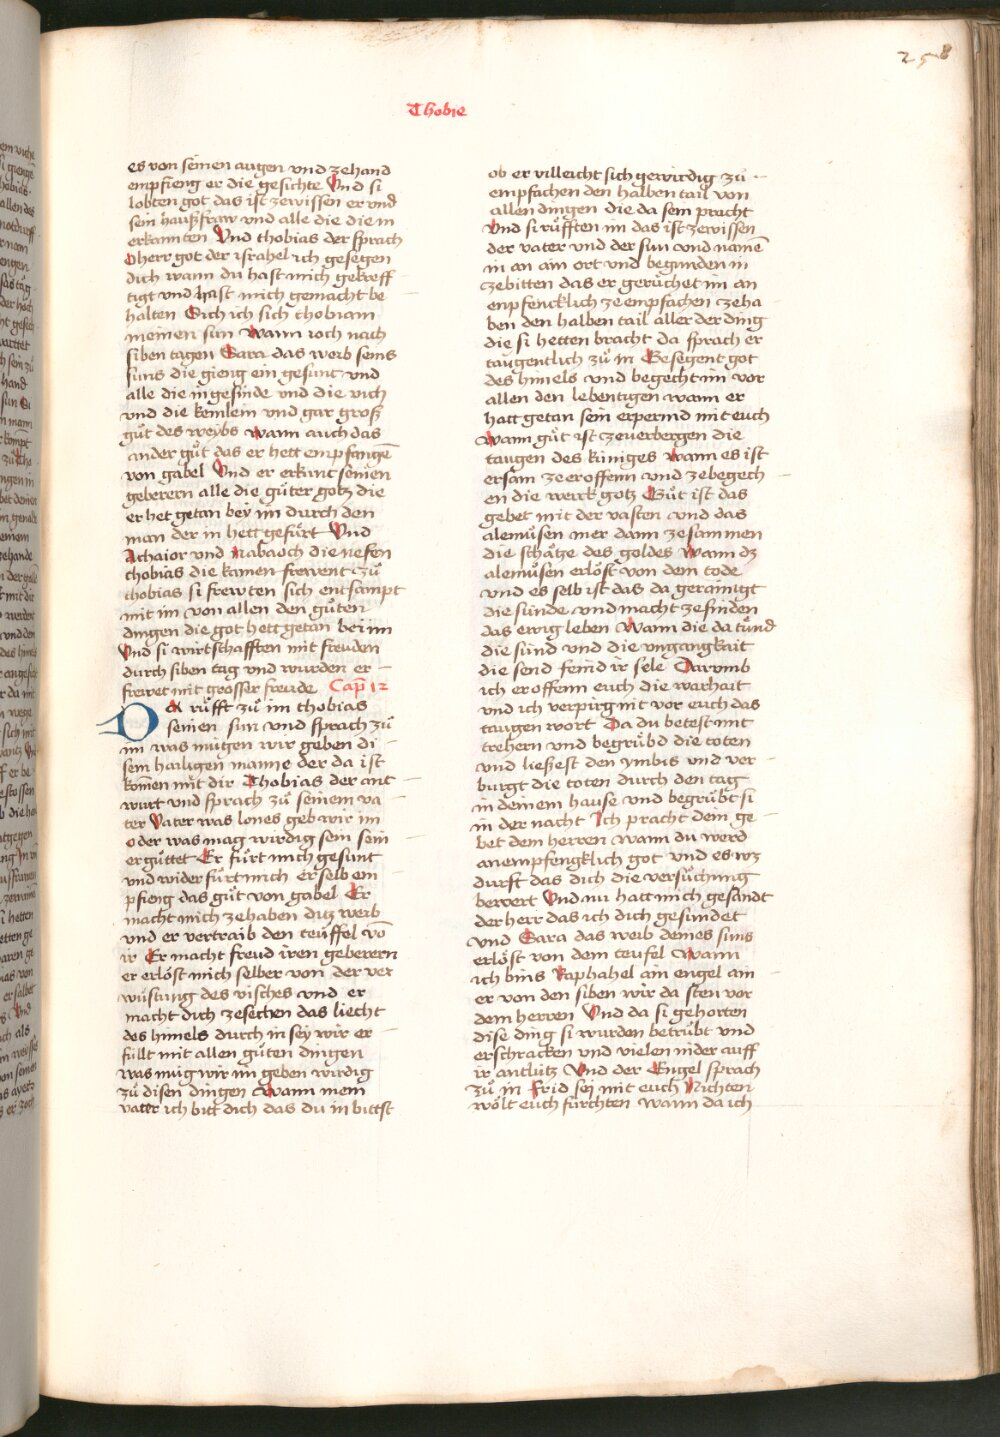 258
Thobie
es von seinen augen vnd zehand
empfieng er die gesichte Vnd si
lobten got das ist zewissen er vnd
sein haußfraw vnd alle die die in
erkannten Vnd thobias der sprach
O herr got der israhel ich gesegen
dich wann du hast mich gekeff
tigt vnd hast mich gemacht be
halten Sich ich sich thobiam
meinen sun Wann ioch nach
siben tagen Sara das weib seins
suns die gieng ein gesunt vnd
alle die ingesinde vnd die vich
vnd die kemlein vnd gar groß
gůt des weybs Wann auch das
ander gůt das er hett empfangē
von gabel Vnd er erkunt seinen
geberern alle die gůter gotz die
er het getan bey im durch den
man der in hett gefůrt Vnd
Achaior vnd Nabaoch die nefen
thobias die kamen frewent zů
thobias si frewten sich entsampt
mit im von allen den gůten
dingen die got hett getan bei im
Vnd si wirtschafften mit freuden
durch siben tag vnd wurden er
frewet mit grosser freude Cap̄ 12
DA růfft zů im thobias
seinen sun vnd sprach zů
im was můgen wir geben di
sem hailigen manne der da ist
komen mit dir Thobias der ant
wurt vnd sprach zů seinem va
ter Vater was lones geb wir im
oder was mag wirdig sein sein
er gůttet Er fůrt mich gesunt
vnd wider fůrt mich er selb em
pfieng das gůt von gabel Er
macht mich zehaben duz weib
vnd er vertraib den teuffel vō
ir Er macht freud iren geberern
er erlöst mich selber von der ver
wüstung des visches vnd er
macht dich zesechen das liecht
des himels durch in sey wir er
füllt mit allen gůten dingen
was můg wir im geben wirdig
zů disen dingen Wann mein
vater ich bitt dich das du in bittst
ob er villeicht sich gewirdig zů
empfachen den halben tail von
allen dingen die da sein pracht
Vnd si růfften im das ist zewissen
der vater vnd der sun vnd namē
in an ain ort vnd begunden in
zebitten das er gerůchet im an
enpfencklich ze empfachen zeha
ben den halben tail aller der ding
die si hetten bracht da sprach er
taugentlich zů in Gesegent got
des himels vnd begecht im vor
allen den lebentigen wann er
hatt getan sein erpermd mit euch
Wann gůt ist zeuerbergen die
taugen des küniges Wann es ist
ersam ze eroffenn vnd zebegech
en die werck gotz Gůt ist das
gebet mit der vasten vnd das
alemůsen mer dann zesammen
die schätze des goldes Wann dz
alemůsen erlöst von dem tode
vnd es selb ist das da gerainigt
die sünde vnd macht zefinden
das ewig leben Wann die da tůnd
die sünd vnd die vngangkait
die send feind ir sele Darumb
ich eroffenn euch die warhait
vnd ich verpirg nit vor euch das
taugen wort Da du betest mit
trehern vnd begrůbd die toten
vnd ließest den ymbis vnd ver
burgt die toten durch den tag
in deinem hause vnd begrůbt si
in der nacht Ich pracht dein ge
bet dem herren wann du werd
anempfengklich got vnd es wz
durft das dich die versůchung
bewert Vnd nu hatt mich gesandt
der herr das ich dich gesundet
vnd Sara das weib deines suns
erlöst von dem teufel Wann
ich bins Raphahel ain engel ain
er von den siben wir da sten vor
dem herren Vnd da si gehorten
dise ding si wurden betrůbt vnd
erschracken vnd vielen nider auff
ir antlütz Vnd der Engel sprach
zů in Frid sej mit euch Nichten
wölt euch fürchten Wann da ich